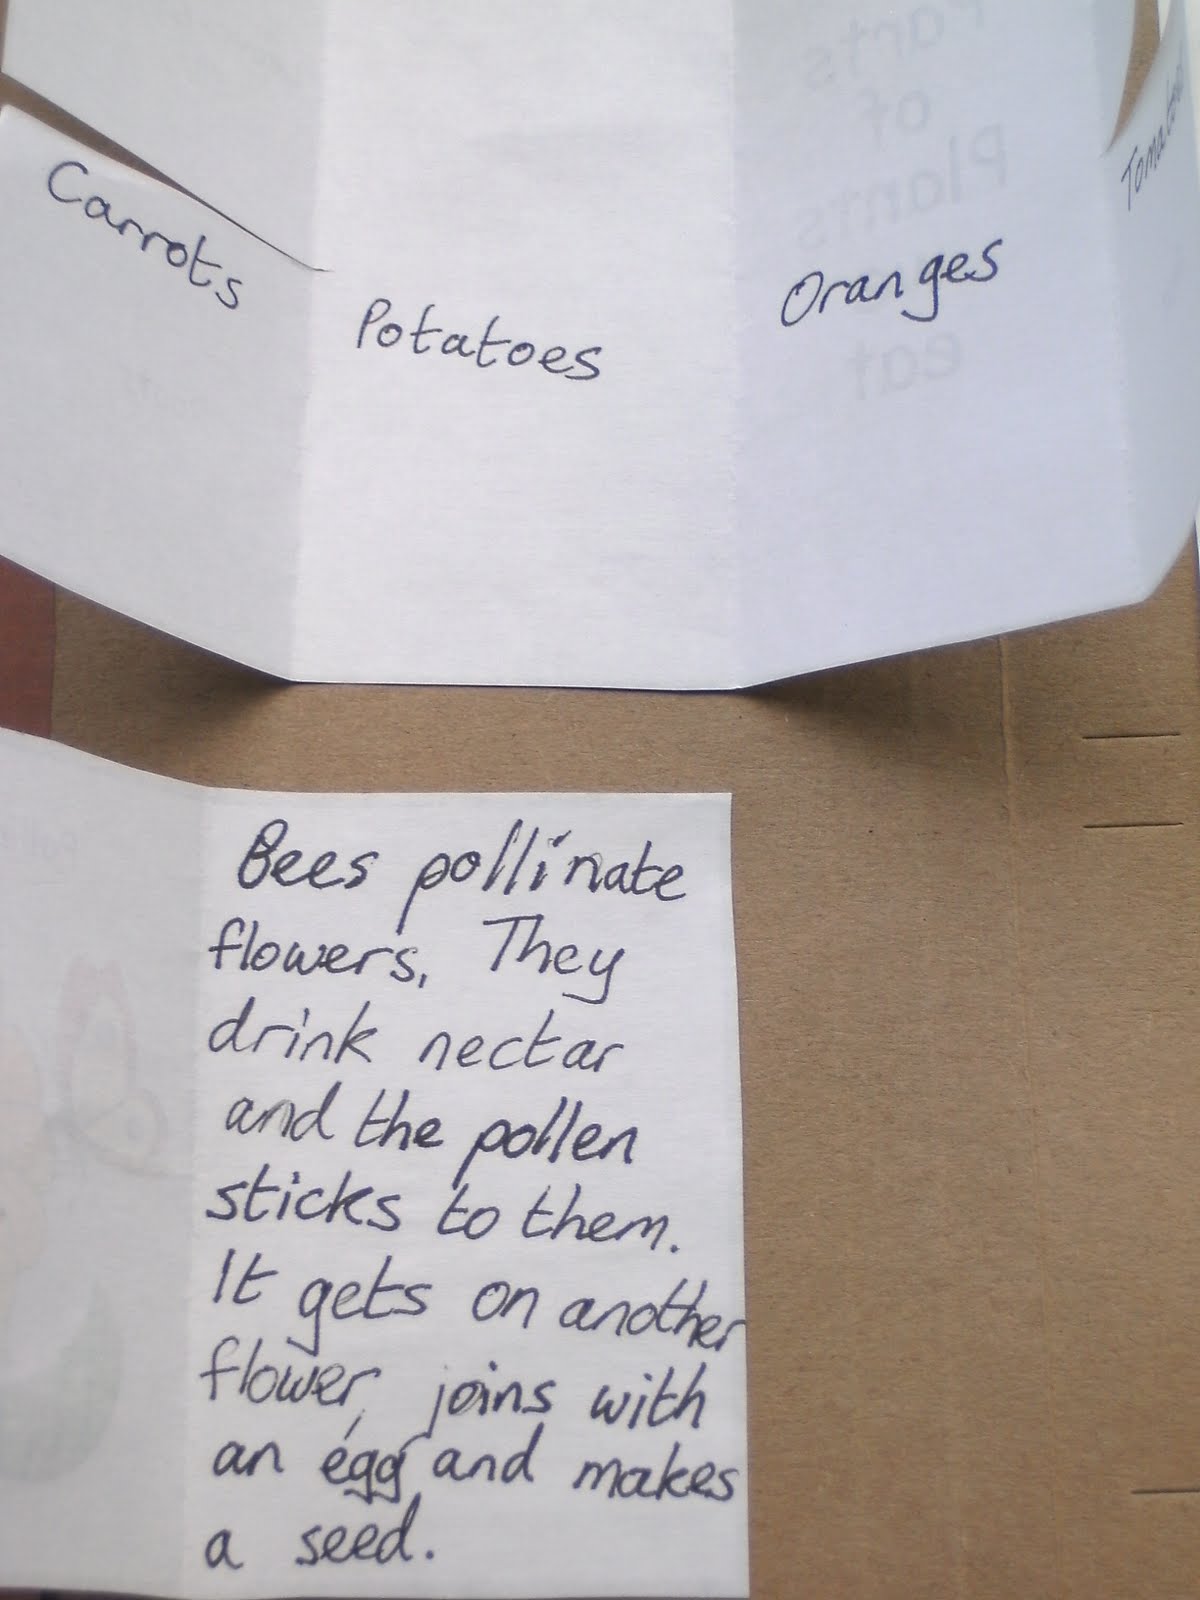 Carrots
Potatoes
Oranges
Parts
of
Plants
eat
Bees pollinate
flowers. They
drink nectar
and the pollen
sticks to them.
It gets on another
flower, joins with
an egg and makes
a seed.